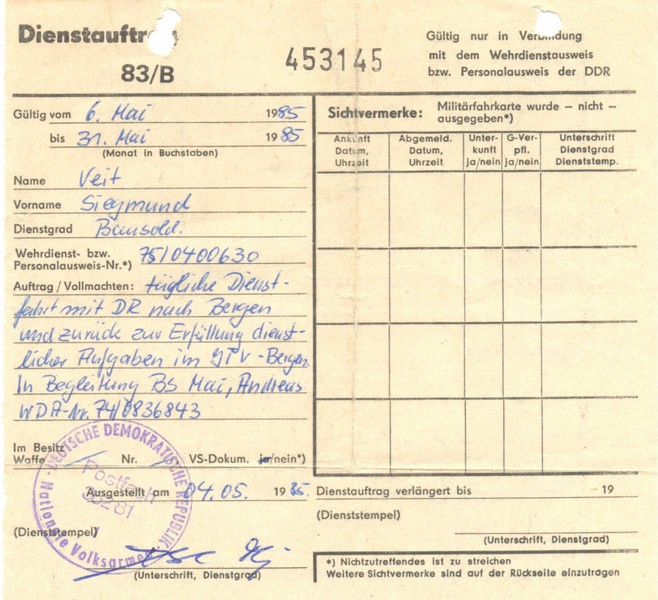 Dienstauftrag
83/B
453145
Gültig nur in Verbindung
mit dem Wehrdienstausweis
bzw. Personalausweis der DDR
Gültig vom 6. Mai 1985
bis 31. Mai 1985
(Monat in Buchstaben)
Name Veit
Vorname Siegmund
Dienstgrad Bausold.
Wehrdienst- bzw.
Personalausweis-Nr.*) 75/0400630
Auftrag / Vollmachten: tägliche Dienst-
fahrt mit DR nach Bergen
und zurück zur Erfüllung dienst-
licher Aufgaben im -Bergen
In Begleitung BS Mai, Andreas
WDA-Nr. 74/0836843
Im Besitz
Waffe Nr. VS-Dokum. ja/nein*)
Ausgestellt am 04.05. 1985
(Dienststempel)
(Unterschrift, Dienstgrad)
DEUTSCHE DEMOKRATISCHE REPUBLIK
Nationale Volksarmee
Postfach
Sichtvermerke: Militärfahrkarte wurde – nicht –
ausgegeben*)
Ankunft
Datum,
Uhrzeit
Abgemeld.
Datum,
Uhrzeit
Unter-
kunft
ja/nein
G-Ver-
pfl.
ja/nein
Unterschrift
Dienstgrad
Dienststemp.
Dienstauftrag verlängert bis 19
(Dienststempel)
(Unterschrift, Dienstgrad)
*) Nichtzutreffendes ist zu streichen
Weitere Sichtvermerke sind auf der Rückseite einzutragen